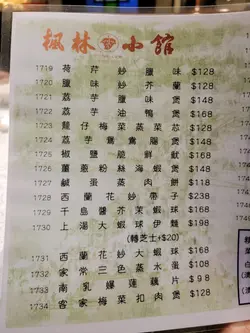 楓林小館
1719 荷芹炒臘味 $128
1720 臘味炒芥蘭 $128
1721 荔芋臘味煲 $148
1722 荔芋油鴨煲 $168
1723 鷄仔梅菜蒸菜芯 $128
1724 荔芋鴛鴦腸煲 $148
1725 椒鹽脆鮮魷 $168
1726 薑葱粉絲海蝦煲 $148
1727 鹹蛋蒸肉餅 $118
1728 西蘭花炒帶子 $238
1729 千島醬芥茉蝦球 $168
1730 上湯大蝦球伊麵 $198
(轉芝士+$20)
1731 西蘭花炒大蝦球 $168
1732 家常三色蒸水蛋 $108
1733 南乳爆蓮藕片 $98
1734 客家梅菜扣肉煲 $128